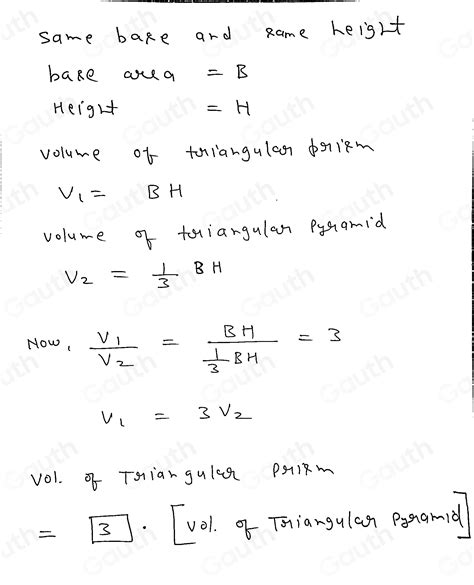 same base and same height
base area = B
Height = H
volume of triangular prism
V₁ = BH
volume of triangular pyramid
V₂ = 1/3 BH
Now, V₁/V₂ = BH / (1/3 BH) = 3
V₁ = 3 V₂
Vol. of Triangular Prism
= 3 · [vol. of Triangular Pyramid]